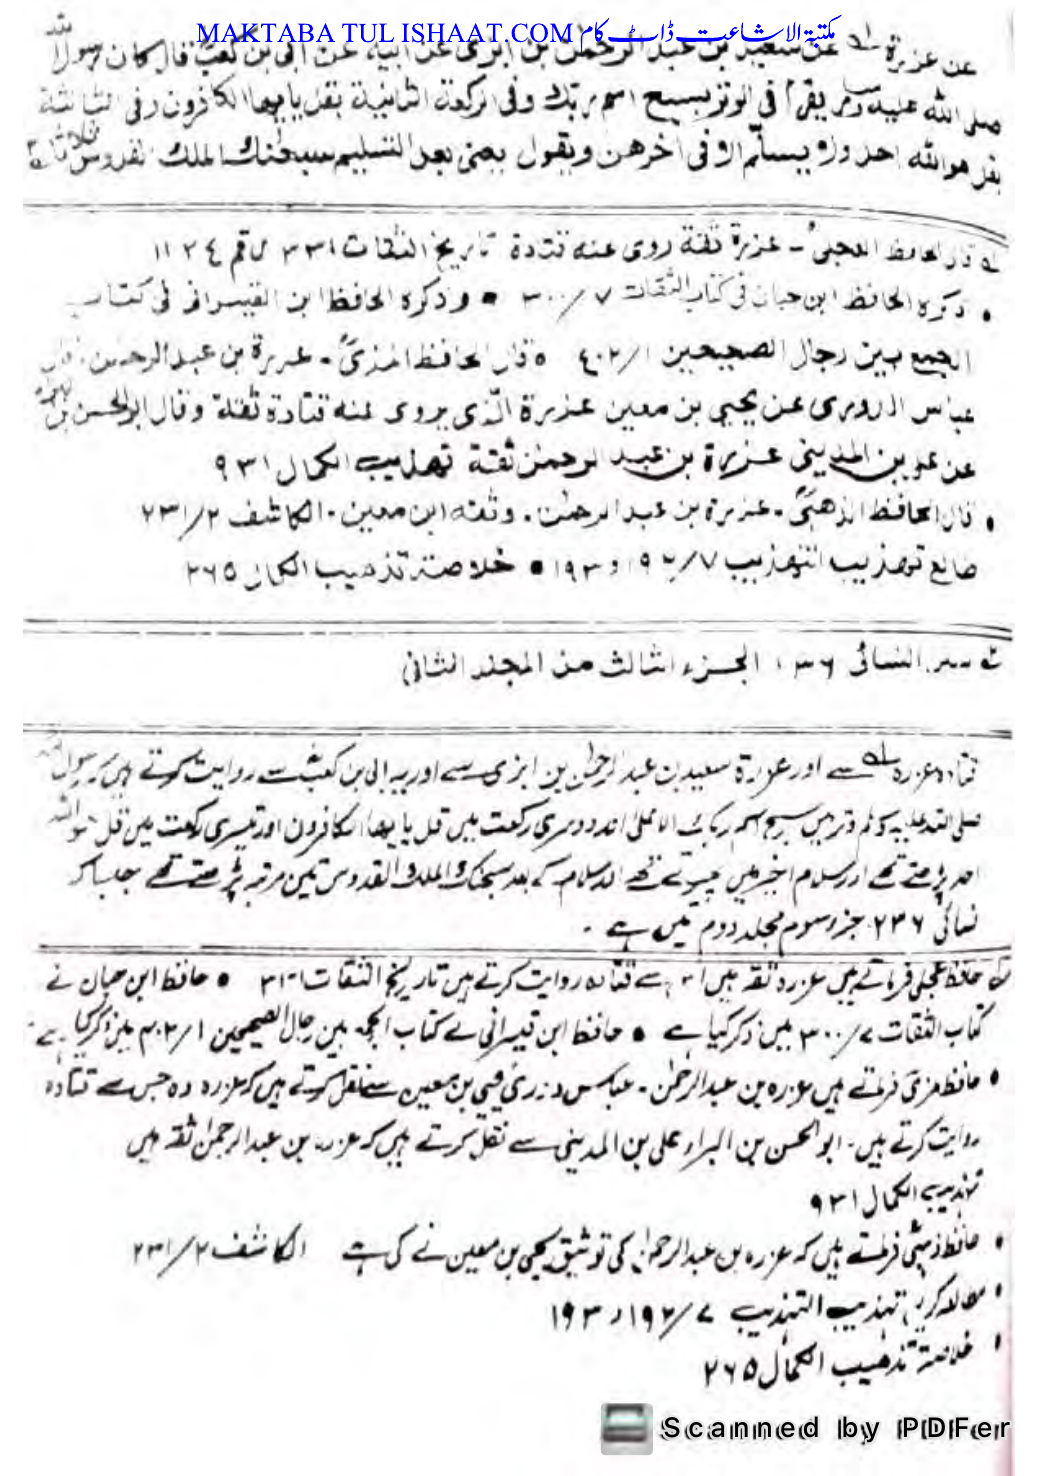 MAKTABA TUL ISHAAT.COM مکتبۃ الاشاعت ڈاٹ کام
عن عزرة عن سعيد بن عبد الرحمٰن بن ابزى عن ابيه عن ابى بن كعب قال كان رسول الله
صلى الله عليه وسلم يقرأ فى الوتر بسبح اسم ربك وفى الركعة الثانية بقل يايها الكافرون وفى الثالثة
بقل هو الله احد ولا يسلّم الا فى اخرهن ويقول يعنى بعد التسليم سبحٰنك الملك القدوس ثلاثا
قال الحافظ العجلىؒ - عزرة ثقة روى عنه قتادة تاريخ الثقات ٣٣١ رقم ١١٢٤
• ذكره الحافظ ابن حبان فى كتاب الثقات ٧/٣٠٠ • وذكره الحافظ ابن القيسرانى فى كتاب
الجمع بين رجال الصحيحين ١/٤٠٢ • قال الحافظ المزىؒ - عزرة بن عبد الرحمٰن. قال
عباس الدورى عن يحيى بن معين عزرة الّذى يروى عنه قتادة ثقة وقال ابو الحسن بن البراء
عن على بن المدينى عزرة بن عبد الرحمٰن ثقة تهذيب الكمال ٩٣١
• قال الحافظ الذهبىؒ - عزرة بن عبد الرحمٰن. وثقه ابن معين - الكاشف ٢/٢٣١
طالع تهذيب التهذيب ٧/١٩٢ و ١٩٣ • خلاصة تذهيب الكمال ٢٦٥
النسائى ٢٣٦ الجزء الثالث من المجلد الثانى
قتادہ عزرہ سے اور عزرۃ سعید بن عبد الرحمٰن بن ابزی سے اور یہ ابی بن کعبؓ سے روایت کرتے ہیں کہ رسول اللہ
صلی اللہ علیہ وسلم وتر میں سبح اسم ربک الاعلیٰ اور دوسری رکعت میں قل یایھا الکافرون اور تیسری رکعت میں قل ھو اللہ
احد پڑھتے تھے اور سلام اخیر میں پھیرتے تھے اور سلام کے بعد سبحٰنک الملک القدوس تین مرتبہ پڑھتے تھے جیسا کہ
نسائی ٢٣٦ جزء سوم مجلد دوم میں ہے ۔
حافظ عجلی فرماتے ہیں عزرہ ثقہ ہیں ان سے قتادہ روایت کرتے ہیں تاریخ الثقات ٣٣١ • حافظ ابن حبان نے
کتاب الثقات ٧/٣٠٠ میں ذکر کیا ہے • حافظ ابن قیسرانی نے کتاب الجمع بین رجال الصحیحین ١/٤٠٢ میں ذکر کیا ہے ۔
• حافظ مزی فرماتے ہیں عزرہ بن عبد الرحمٰن ۔ عباس دوری یحیی بن معین سے نقل کرتے ہیں کہ عزرہ وہ جس سے قتادہ
روایت کرتے ہیں ۔ ابو الحسن بن البراء علی بن المدینی سے نقل کرتے ہیں کہ عزرہ بن عبد الرحمٰن ثقہ ہیں
تہذیب الکمال ٩٣١
• حافظ ذہبی فرماتے ہیں کہ عزرہ بن عبد الرحمٰن کی توثیق یحیی بن معین نے کی ہے الکاشف ٢/٢٣١
• مطالعہ کریں تہذیب التہذیب ٧/١٩٢ و ١٩٣
• خلاصۃ تذھیب الکمال ٢٦٥
Scanned by PDFer